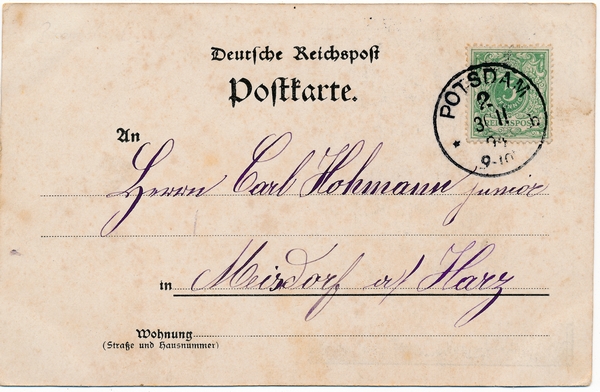 Deutsche Reichspost
Postkarte.
POTSDAM
3. 11.
9-10
5
REICHSPOST
An
Herrn Carl Hohmann junior
in Meisdorf a/ Harz
Wohnung
(Straße und Hausnummer)